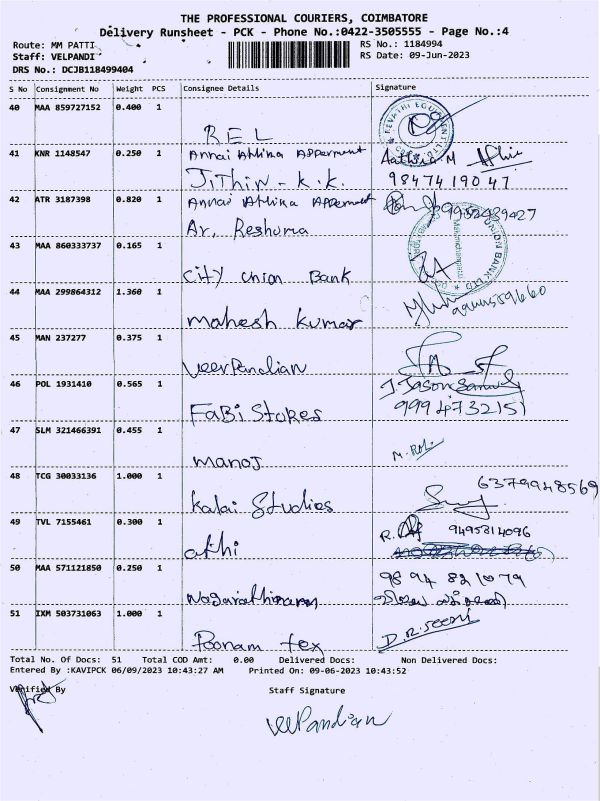 THE PROFESSIONAL COURIERS, COIMBATORE
Delivery Runsheet - PCK - Phone No.:0422-3505555 - Page No.:4
Route: MM PATTI
RS No.: 1184994
Staff: VELPANDI
RS Date: 09-Jun-2023
DRS No.: DCJB118499404
S No Consignment No Weight PCS Consignee Details Signature
40 MAA 859727152 0.400 1
REL
41 KNR 1148547 0.250 1 Annai Athina Apperment Aathira M
JiThin - K.K. 9847419047
42 ATR 3187398 0.820 1 Annai Athina Apperment
Ar. Reshma
43 MAA 860333737 0.165 1
City Union Bank
44 MAA 299864312 1.360 1
mahesh kumar
45 MAN 237277 0.375 1
VeerPandian
46 POL 1931410 0.565 1 J. Jason
FaBi Stores 9994732151
47 SLM 321466391 0.455 1
manoj
48 TCG 30033136 1.000 1 6379948569
Kalai Studies
49 TVL 7155461 0.300 1 R. 9495314096
athi
50 MAA 571121850 0.250 1 98 94 821079
Nagarathinam
51 IXM 503731063 1.000 1
Poonam tex
Total No. Of Docs: 51 Total COD Amt: 0.00 Delivered Docs: Non Delivered Docs:
Entered By :KAVIPCK 06/09/2023 10:43:27 AM Printed On: 09-06-2023 10:43:52
Verified By Staff Signature